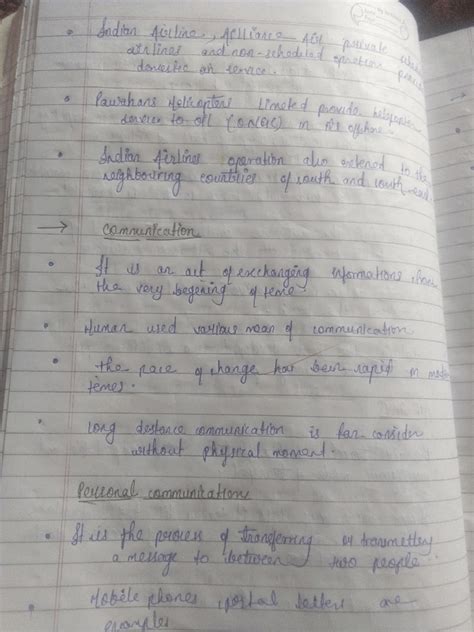 • Indian Airline, Alliance AIR private
airlines and non-scheduled operation provi
domestic air service.
• Pawahans Helicopters Limeted provide helicopter
service to oil (ONGC) in it's offshore
• Indian Airlines operation also extened to the
neighbouring countries of south and south-east
→ Communication
• It is an act of exchanging informations, from
the very begening of teme
• Human used various mean of communication
• the pace of change has been rapid in modern
temes.
• Long destance communication is far consider
without physical moment.
Personal communication
• It is the process of transferring or transmetting
a message to between two people.
• Mobele phones, postal letters are
examples